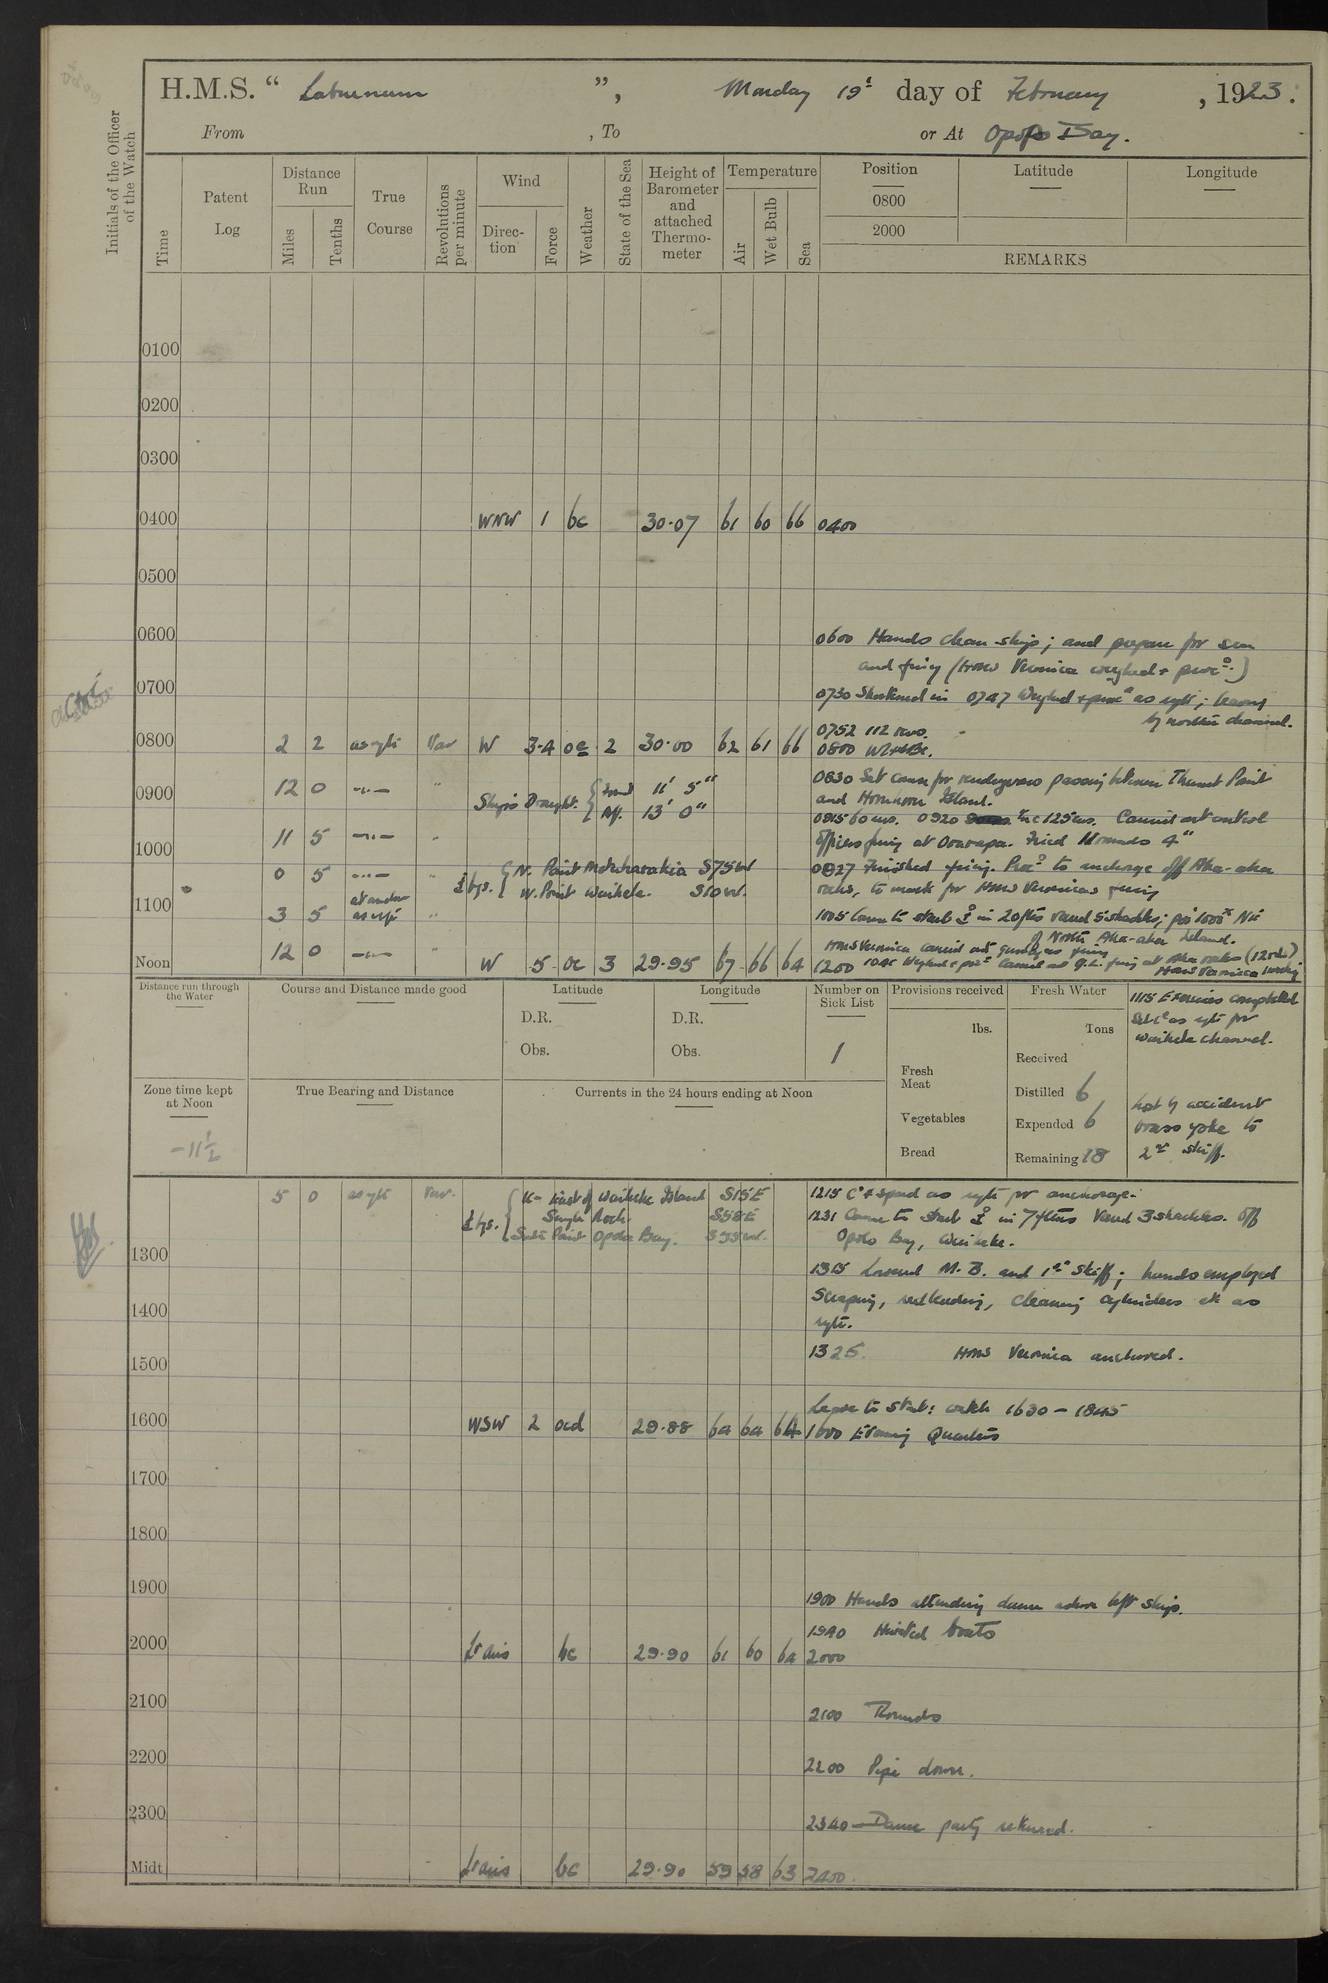 H.M.S. “ Laburnum ”, Monday 19th day of February, 1923.
From , To or At Opopo Bay.
Initials of the Officer of the Watch
Time
Patent Log
Distance Run
Miles
Tenths
True Course
Revolutions per minute
Wind
Direction
Force
Weather
State of the Sea
Height of Barometer and attached Thermometer
Temperature
Air
Wet Bulb
Sea
Position
0800
2000
Latitude
Longitude
REMARKS
0100
0200
0300
0400 WNW 1 bc 30.07 61 60 66 0400
0500
0600 0600 Hands clean ship; and prepare for sea
and firing (HMS Veronica weighed & procd.)
0700 0730 Shortened in 0747 Weighed & procd as reqte; leaving
by northern channel.
0752 112 revs.
0800 2 2 as reqte Var W 3.4 oc 2 30.00 62 61 66 0800
0830 Set course for rendezvous passing between Thumb Point
0900 12 0 -"- " Ship's Draught. { Forwd 11' 5"
Aft. 13' 0"
and Horuhoru Island.
0915 60 revs. 0920 Inc 125 revs. Carried out control
11 5 -"- " officers firing at Orarapa. Fired 11 rounds 4"
1000 0 5 -"- " Bgs. { N. Point Motuharakia S75W
W. Point Waiheke. S10W.
0927 Finished firing. Procd to anchorage off Aka-aka
rocks, to mark for HMS Veronica's firing
at anchor
1100 3 5 as reqte " 1005 Came to starb in 20 fms veered 5 shackles;
of North Aka-aka Island.
HMS Veronica carried out firing
Noon 12 0 -"- " W 5 oc 3 29.95 67 66 64 1200 1045 Weighed & procd Carried out firing at Aka rocks (12 rds)
HMS Veronica
Distance run through the Water
Course and Distance made good
Latitude
D.R.
Obs.
Longitude
D.R.
Obs.
Number on Sick List
1
Provisions received
lbs.
Fresh Meat
Vegetables
Bread
Fresh Water
Tons
Received
Distilled 6
Expended 6
Remaining 18
1115 Exercises completed
Set Co as reqte for
Waiheke channel.
Lost by accident
brass yoke to
2nd skiff.
Zone time kept at Noon
-11½
True Bearing and Distance
Currents in the 24 hours ending at Noon
5 0 as reqte Var. Bgs. { East of Waiheke Island S15E
Single Rock. S58E
South Point Opopo Bay. S35W.
1215 Co & speed as reqte for anchorage.
1231 Came to starb in 7 fms veered 3 shackles. Off
Opopo Bay, Waiheke.
1300 1315 Lowered M.B. and 1st Skiff; hands employed
1400 Scraping, red leading, cleaning cylinders etc as
reqte.
1500 1325. HMS Veronica anchored.
Leave to starb: watch 1630 - 1845
1600 WSW 2 ocd 29.88 64 64 64 1600 Evening Quarters
1700
1800
1900 1900 Hands attending dance ashore left ship.
1940 Hoisted boats
2000 Lt airs bc 29.90 61 60 64 2000
2100 2100 Rounds
2200 2200 Pipe down.
2300 2340 Dance party returned.
Midt Lt airs bc 29.90 59 58 63 2400.